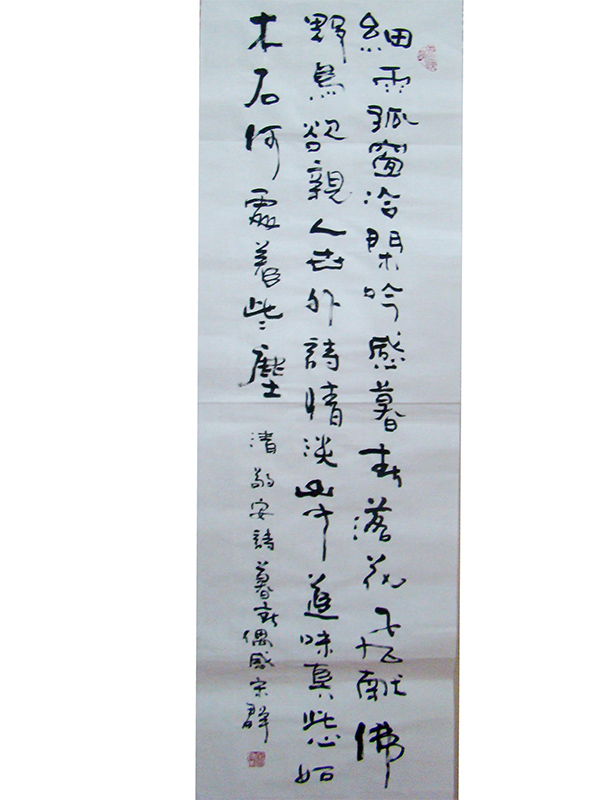 細雨孤窗冷閑吟感暮春落花飛献佛
野鳥欲親人世外詩情淡山中味真此心如
木石何處着些塵 清敬安詩暮春偶感宋群